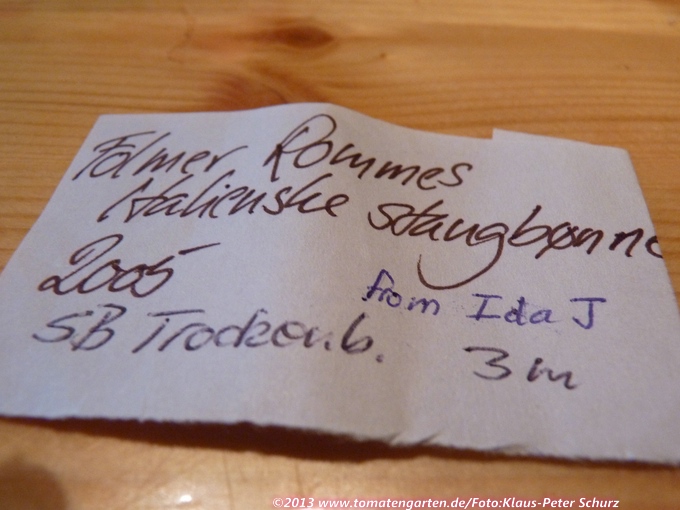 Folmer Rommes
Italienske stangbønne
2005
from Ida J
SB Trockenb. 3m
©2013 www.tomatengarten.de/Foto:Klaus-Peter Schurz